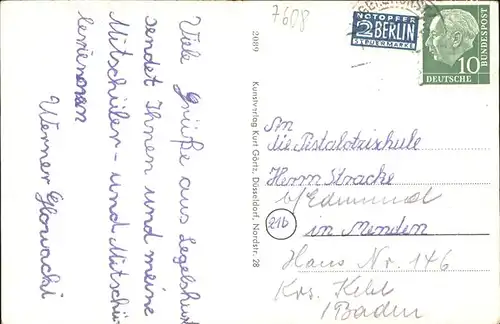 Viele Grüße aus Legelshurst
sendet Ihnen und meine
Mitschüler- und Mitschü-
lerienonen
Werner Glowacki
7608
2089
Kunstverlag Kurt Görtz, Düsseldorf, Nordstr. 28
NOTOPFER
2 BERLIN
STEUERMARKE
10
DEUTSCHE
BUNDESPOST
An
die Pestalotzischule
Herrn Stracke
b/Edmund
21b
in Menden
Haus Nr. 146
Krs. Kehl
/Baden